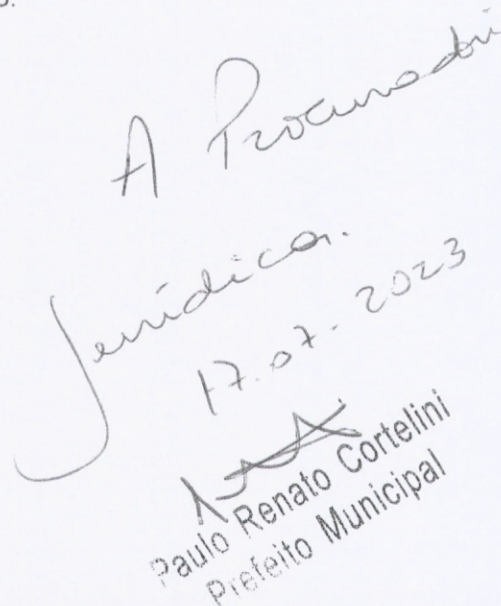 A Procuradori
Jurídica.
17.07.2023
Paulo Renato Cortelini
Prefeito Municipal